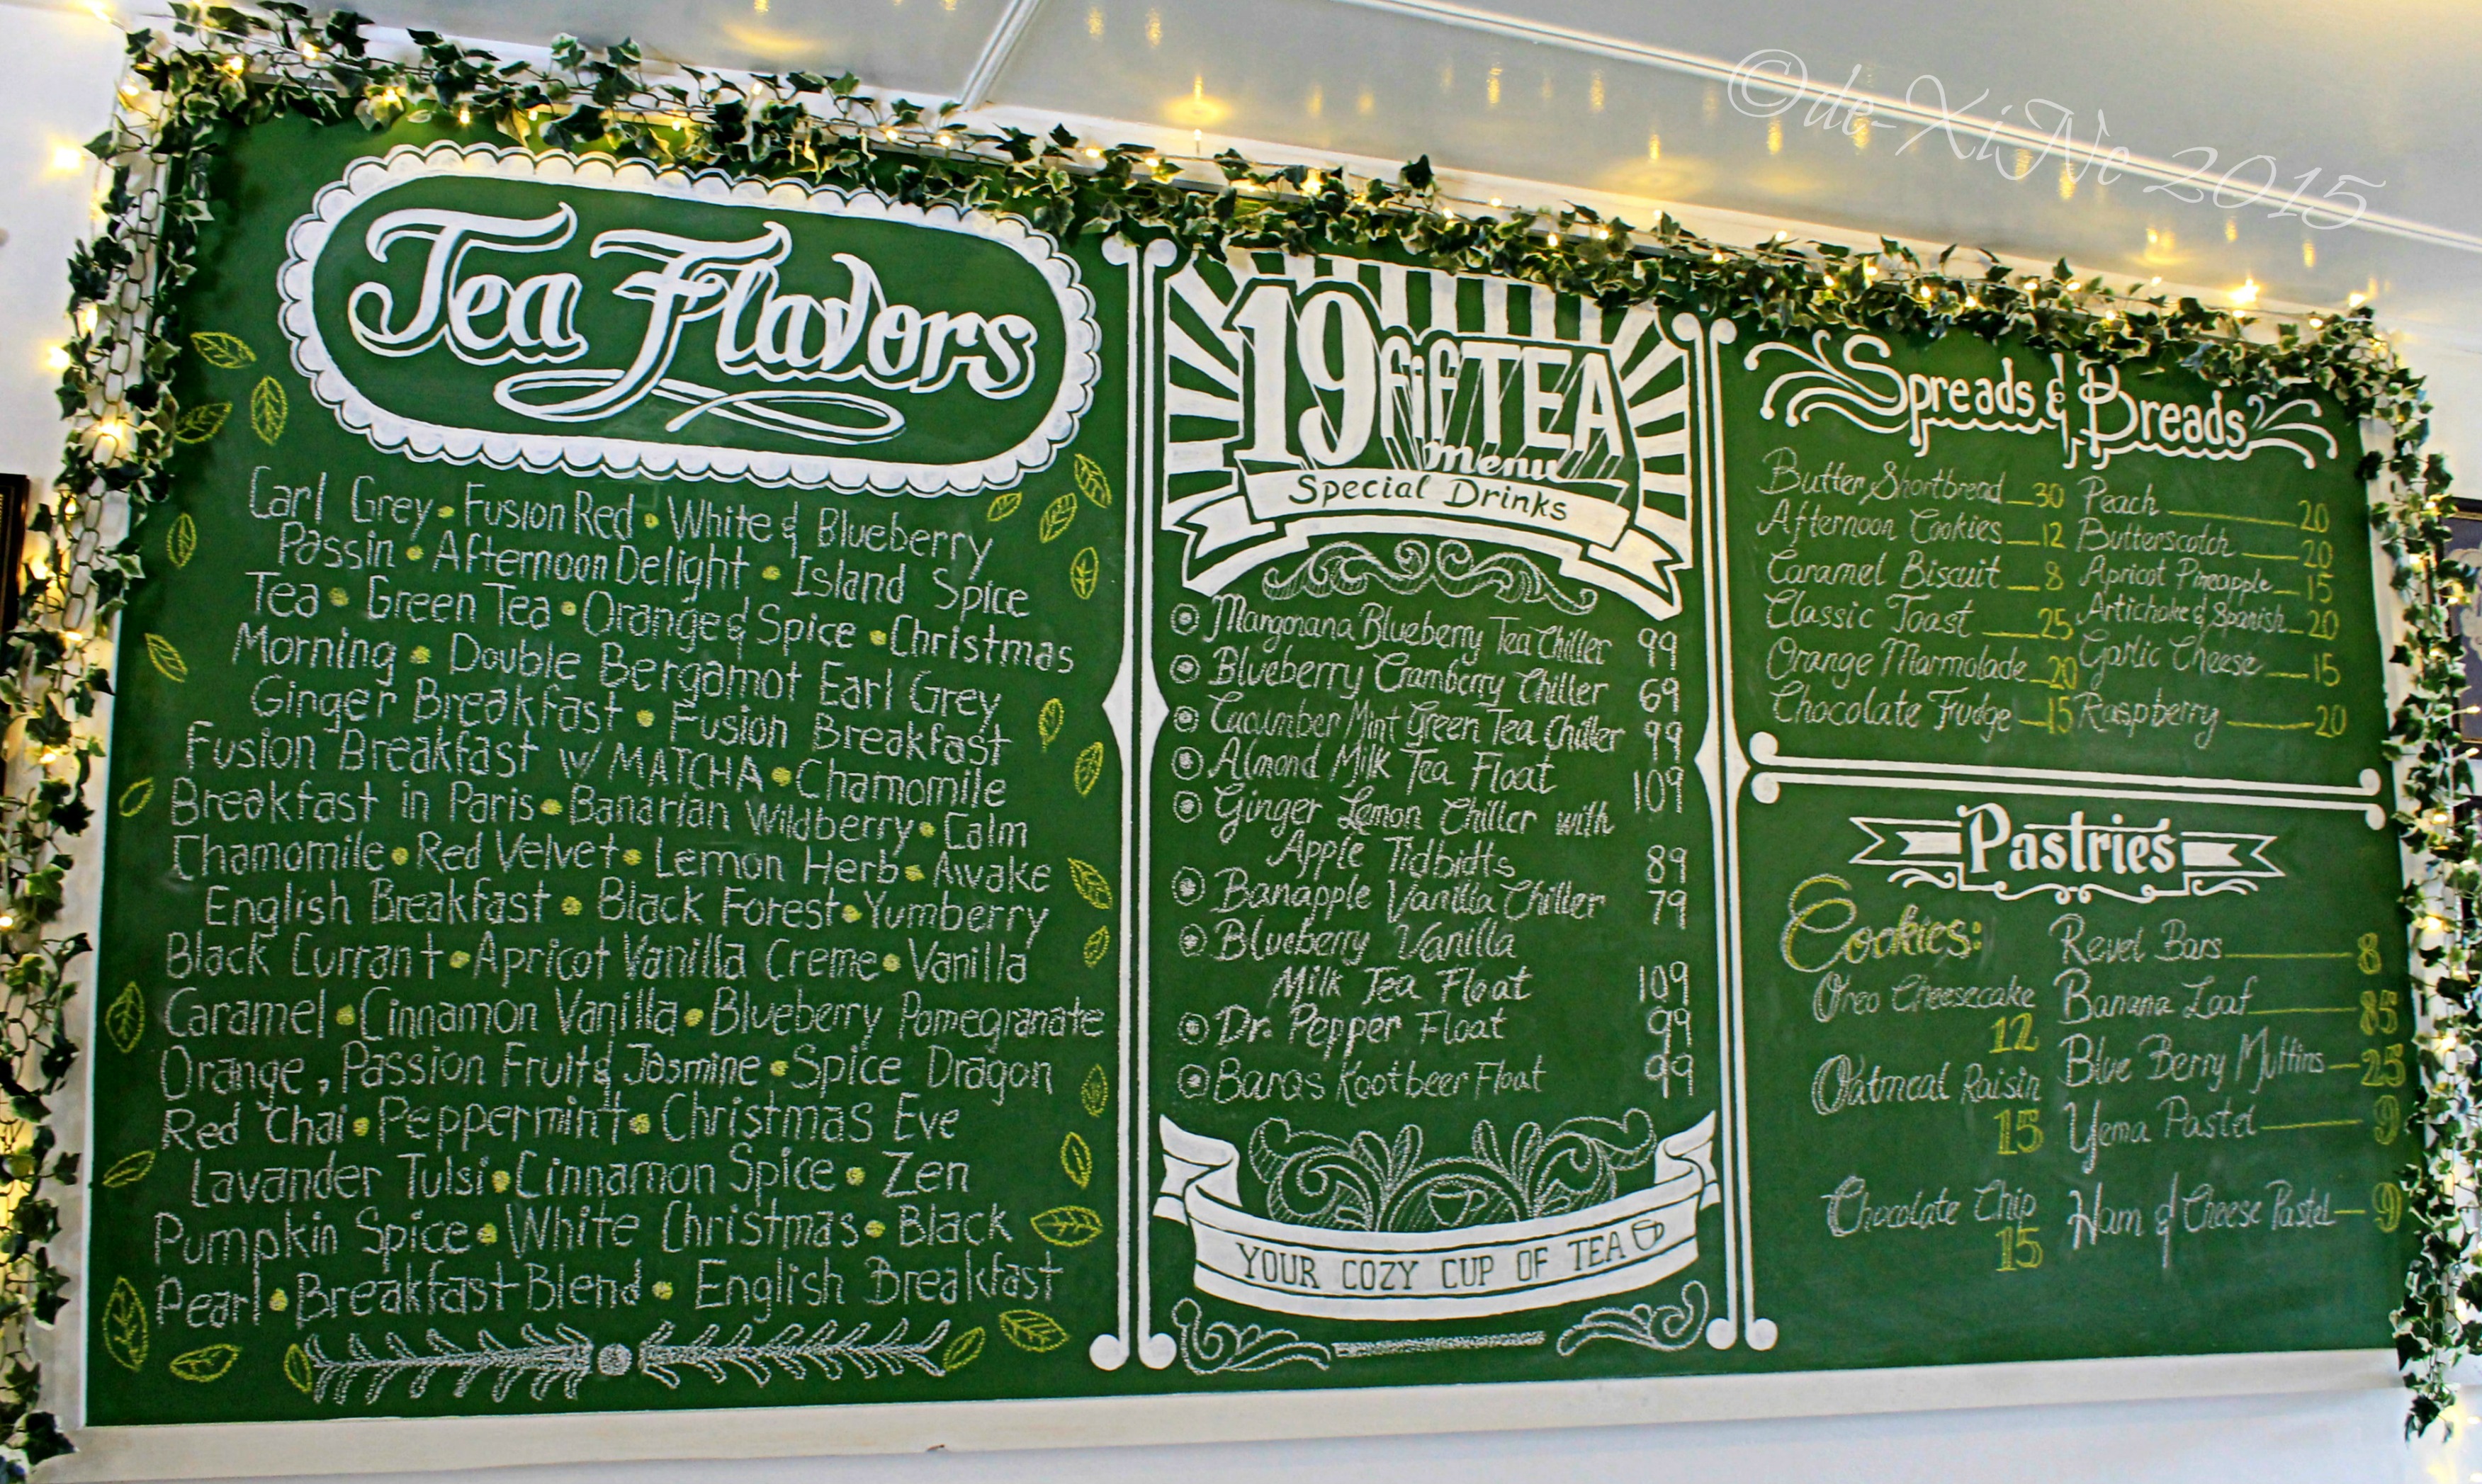 ©de-XiNe 2015
Tea Flavors
Earl Grey • Fusion Red • White & Blueberry
Passin • Afternoon Delight • Island Spice
Tea • Green Tea • Orange & Spice • Christmas
Morning • Double Bergamot Earl Grey
Ginger Breakfast • Fusion Breakfast
Fusion Breakfast w/ MATCHA • Chamomile
Breakfast in Paris • Banarian Wildberry • Calm
Chamomile • Red Velvet • Lemon Herb • Awake
English Breakfast • Black Forest • Yumberry
Black Currant • Apricot Vanilla Creme • Vanilla
Caramel • Cinnamon Vanilla • Blueberry Pomegranate
Orange, Passion Fruit & Jasmine • Spice Dragon
Red Chai • Peppermint • Christmas Eve
Lavander Tulsi • Cinnamon Spice • Zen
Pumpkin Spice • White Christmas • Black
Pearl • Breakfast Blend • English Breakfast
19fifTEA
menu
Special Drinks
Mangorana Blueberry Tea Chiller 99
Blueberry Cramberry Chiller 69
Cucumber Mint Green Tea Chiller 99
Almond Milk Tea Float 109
Ginger Lemon Chiller with
Apple Tidbidts 89
Banapple Vanilla Chiller 79
Blueberry Vanilla
Milk Tea Float 109
Dr. Pepper Float 99
Barqs Rootbeer Float 99
YOUR COZY CUP OF TEA
Spreads & Breads
Butter Shortbread 30
Afternoon Cookies 12
Caramel Biscuit 8
Classic Toast 25
Orange Marmolade 20
Chocolate Fudge 15
Peach 20
Butterscotch 20
Apricot Pineapple 15
Artichoke & Spanish 20
Garlic Cheese 15
Raspberry 20
Pastries
Cookies:
Oreo Cheesecake
12
Oatmeal Raisin
15
Chocolate Chip
15
Revel Bars 8
Banana Loaf 85
Blue Berry Muffins 25
Yema Pastel 9
Ham & Cheese Pastel 9